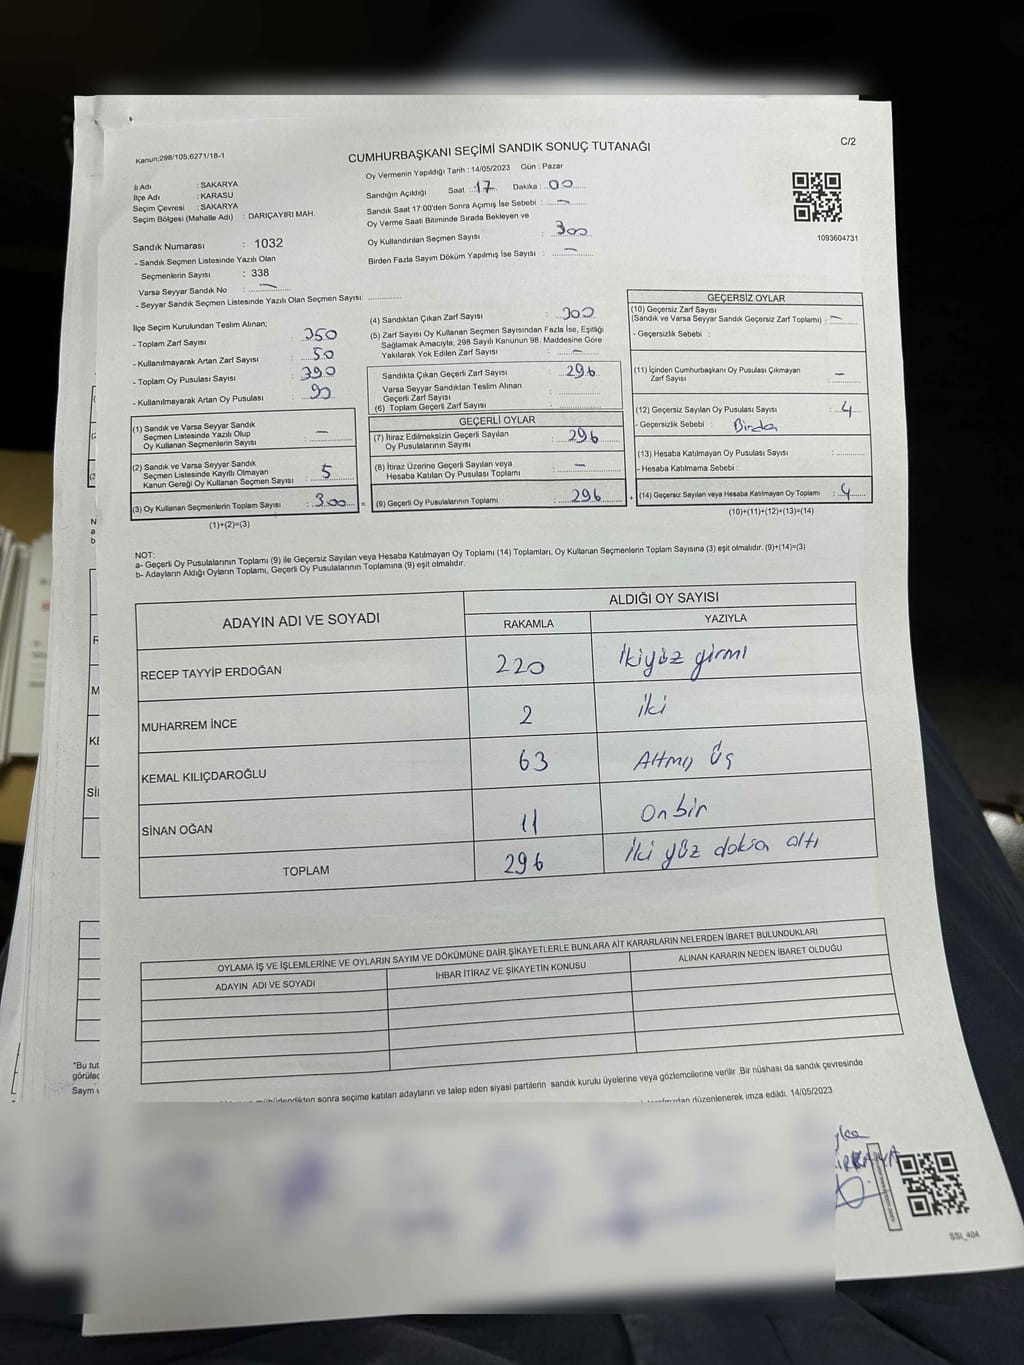 Kanun:298/105;6271/18-1
CUMHURBAŞKANI SEÇİMİ SANDIK SONUÇ TUTANAĞI
C/2
Oy Vermenin Yapıldığı Tarih : 14/05/2023 Gün : Pazar
İl Adı : SAKARYA
İlçe Adı : KARASU
Seçim Çevresi : SAKARYA
Seçim Bölgesi (Mahalle Adı) : DARIÇAYIRI MAH.
Sandığın Açıldığı Saat : 17 Dakika : 00
Sandık Saat 17:00'den Sonra Açımış İse Sebebi : —
Oy Verme Saati Bitiminde Sırada Bekleyen ve
Oy Kullandırılan Seçmen Sayısı : 300
Birden Fazla Sayım Döküm Yapılmış İse Sayısı : —
1093604731
Sandık Numarası : 1032
- Sandık Seçmen Listesinde Yazılı Olan
Seçmenlerin Sayısı : 338
Varsa Seyyar Sandık No : —
- Seyyar Sandık Seçmen Listesinde Yazılı Olan Seçmen Sayısı:
İlçe Seçim Kurulundan Teslim Alınan;
- Toplam Zarf Sayısı : 350
- Kullanılmayarak Artan Zarf Sayısı : 50
- Toplam Oy Pusulası Sayısı : 390
- Kullanılmayarak Artan Oy Pusulası : 90
(1) Sandık ve Varsa Seyyar Sandık
Seçmen Listesinde Yazılı Olup
Oy Kullanan Seçmenlerin Sayısı : —
(2) Sandık ve Varsa Seyyar Sandık
Seçmen Listesinde Kayıtlı Olmayan
Kanun Gereği Oy Kullanan Seçmen Sayısı : 5
(3) Oy Kullanan Seçmenlerin Toplam Sayısı : 300 =
(1)+(2)=(3)
(4) Sandıktan Çıkan Zarf Sayısı : 300
(5) Zarf Sayısı Oy Kullanan Seçmen Sayısından Fazla İse, Eşitliği
Sağlamak Amacıyla; 298 Sayılı Kanunun 98. Maddesine Göre
Yakılarak Yok Edilen Zarf Sayısı : —
Sandıkta Çıkan Geçerli Zarf Sayısı : 296
Varsa Seyyar Sandıktan Teslim Alınan
Geçerli Zarf Sayısı :
(6) Toplam Geçerli Zarf Sayısı :
GEÇERLİ OYLAR
(7) İtiraz Edilmeksizin Geçerli Sayılan
Oy Pusulalarının Sayısı : 296
(8) İtiraz Üzerine Geçerli Sayılan veya
Hesaba Katılan Oy Pusulası Toplamı : —
(9) Geçerli Oy Pusulalarının Toplamı : 296 +
GEÇERSİZ OYLAR
(10) Geçersiz Zarf Sayısı
(Sandık ve Varsa Seyyar Sandık Geçersiz Zarf Toplamı) : —
- Geçersizlik Sebebi :
(11) İçinden Cumhurbaşkanı Oy Pusulası Çıkmayan
Zarf Sayısı : —
(12) Geçersiz Sayılan Oy Pusulası Sayısı : 4
- Geçersizlik Sebebi :
(13) Hesaba Katılmayan Oy Pusulası Sayısı :
- Hesaba Katılmama Sebebi :
(14) Geçersiz Sayılan veya Hesaba Katılmayan Oy Toplamı : 4
(10)+(11)+(12)+(13)=(14)
NOT:
a- Geçerli Oy Pusulalarının Toplamı (9) ile Geçersiz Sayılan veya Hesaba Katılmayan Oy Toplamı (14) Toplamları, Oy Kullanan Seçmenlerin Toplam Sayısına (3) eşit olmalıdır. (9)+(14)=(3)
b- Adayların Aldığı Oyların Toplamı, Geçerli Oy Pusulalarının Toplamına (9) eşit olmalıdır.
ADAYIN ADI VE SOYADI
ALDIĞI OY SAYISI
RAKAMLA YAZIYLA
RECEP TAYYİP ERDOĞAN 220 İkiyüz girmi
MUHARREM İNCE 2 İki
KEMAL KILIÇDAROĞLU 63 Altmış Üç
SİNAN OĞAN 11 On bir
TOPLAM 296 İki yüz doksan altı
OYLAMA İŞ VE İŞLEMLERİNE VE OYLARIN SAYIM VE DÖKÜMÜNE DAİR ŞİKAYETLERLE BUNLARA AİT KARARLARIN NELERDEN İBARET BULUNDUKLARI
ADAYIN ADI VE SOYADI İHBAR İTİRAZ VE ŞİKAYETİN KONUSU ALINAN KARARIN NEDEN İBARET OLDUĞU
"Bu tut
görülec
Sayım v
sonra seçime katılan adayların ve talep eden siyasi partilerin sandık kurulu üyelerine veya gözlemcilerine verilir .Bir nüshası da sandık çevresinde
düzenlenerek imza edildi. 14/05/2023
SSI_404